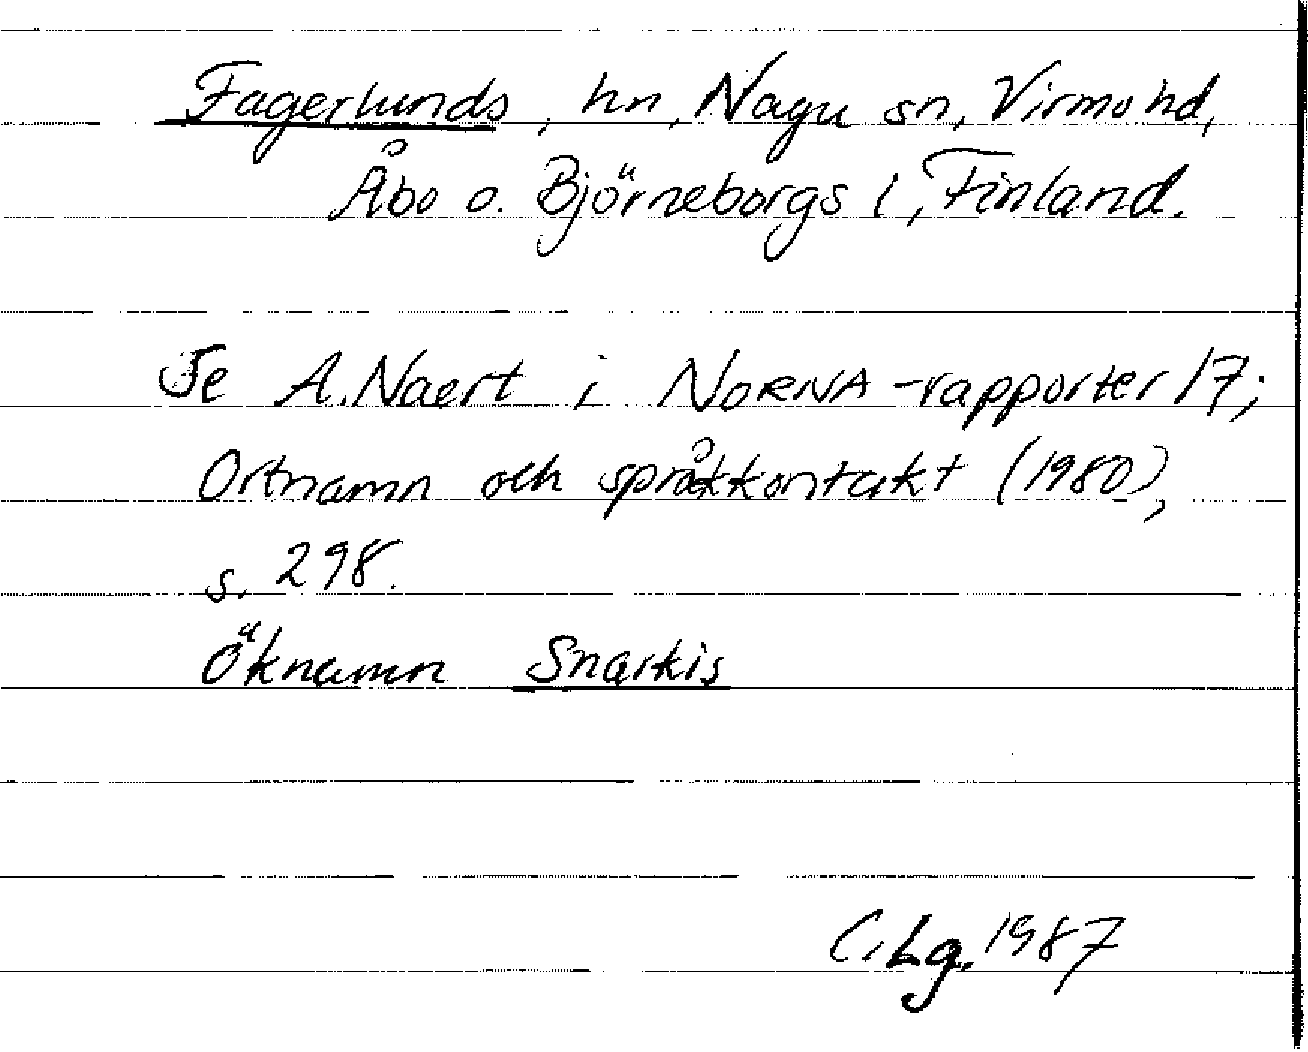 Fagerlunds, hn, Nagu sn, Virmo hd,
Åbo o. Björneborgs l, Finland.
Se A. Naert i NORNA-rapporter 17;
Ortnamn och språkkontakt (1980),
s. 298.
Öknamn Snarkis
C. Lg. 1987